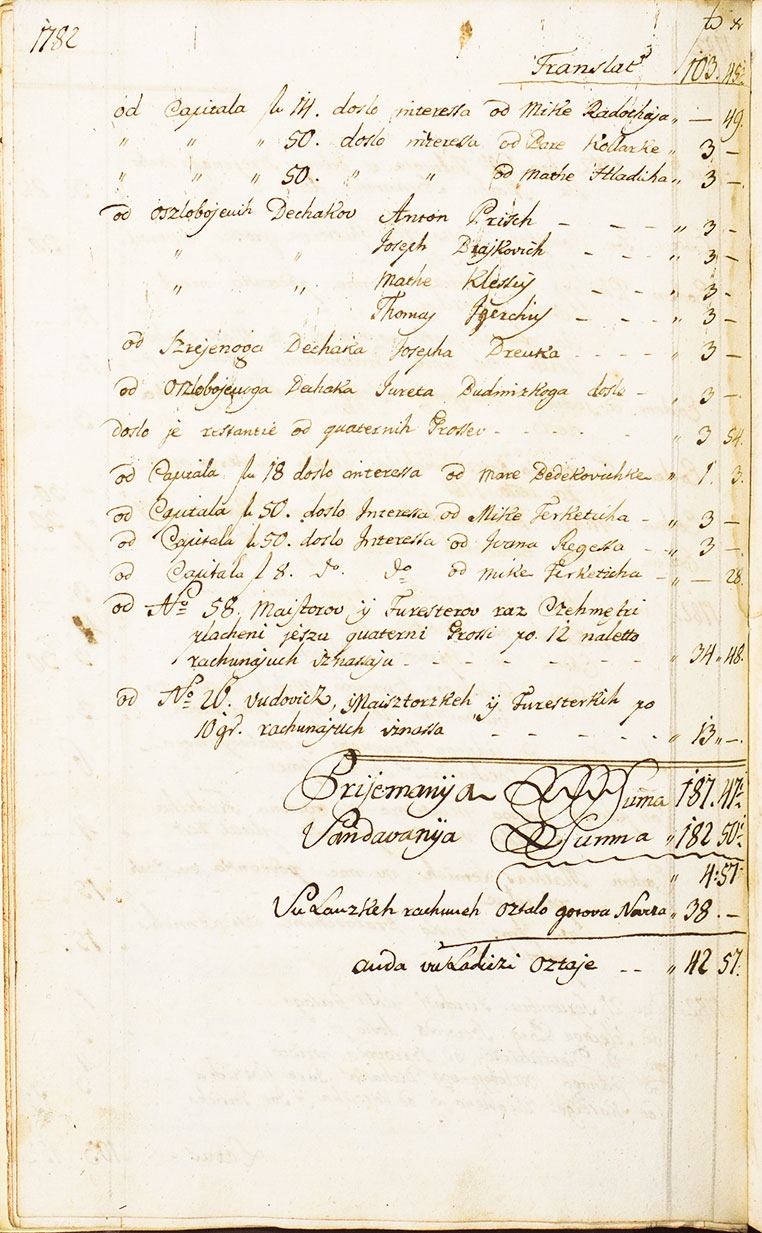 1782
f x
Translat 103. 45
od Capitala fl 14. doslo interessa od Mike Radochaja „ — 49.
„ „ „ 50. doslo interessa od Bare Kollarke „ 3 —
„ „ „ 50. „ „ od Mathe Hladicha „ 3 —
od oszlobojenih Dechakov Anton Prisch — — — „ 3 —
„ „ Joseph Brajkovich — — — „ 3 —
„ „ Mathe — — „ 3 —
Thomas — — — „ 3 —
od Dechaka Josepha Dreuka - - - - „ 3 —
od oszlobojenoga Dechaka Jureta Budmizkoga doslo — „ 3 —
doslo je restantie od quaternih Grossev - - - - „ 3 54.
od Capitala fl 18 doslo interessa od Mare Bedekovichke „ 1. 3.
od Capitala fl 50. doslo Interessa od Mike Ferketicha - „ 3 —
od Capitala fl 50. doslo Interessa od Ivana Regessa - „ 3 —
od Capitala fl 8. do. do. od Mike Ferketicha — „ — 28.
od No 58. Maistorov ÿ Furesterov raz
placheni jeszu quaterni Grossi po 12 naletto
rachunajuch iznassaju - - - - - - „ 34 „ 48.
od No 26. vudovich, Maisztorzkeh ÿ Furesterkih po
10 gr. rachunajuch iznassa - - - - - „ 13 „ —.
Prijemanija Suma 187. 47
Vandavanija Summa „ 182 50
„ 4: 57
Vu Lanzkeh rachuneh Oztalo gotova Novza „ 38. —
anda vu Ladiczi Oztaje - - „ 42 57.